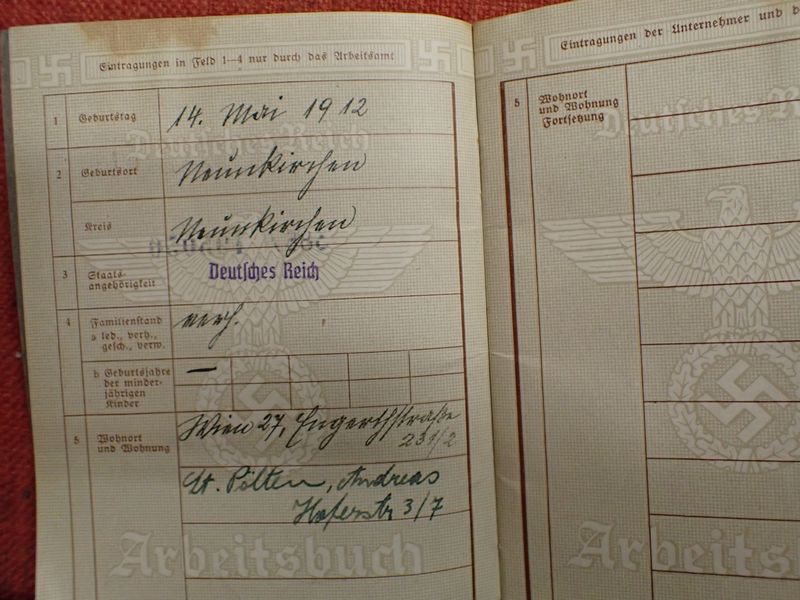 Eintragungen in Feld 1—4 nur durch das Arbeitsamt
1 Geburtstag 14. Mai 1912
2 Geburtsort Neunkirchen
Kreis Neunkirchen
3 Staats-
angehörigkeit
Deutsches Reich
4 Familienstand verh.
a led., verh.,
gesch., verw.
b Geburtsjahre —
der minder-
jährigen
Kinder
5 Wohnort
und Wohnung
Wien 27, Engerthstraße
231/2
St. Pölten, Andreas
Hoferstr 3/7
Deutsches Reich
Arbeitsbuch
Eintragungen der Unternehmer und d
5 Wohnort
und Wohnung
Fortsetzung
Deutsches Reich
Arbeitsbuch